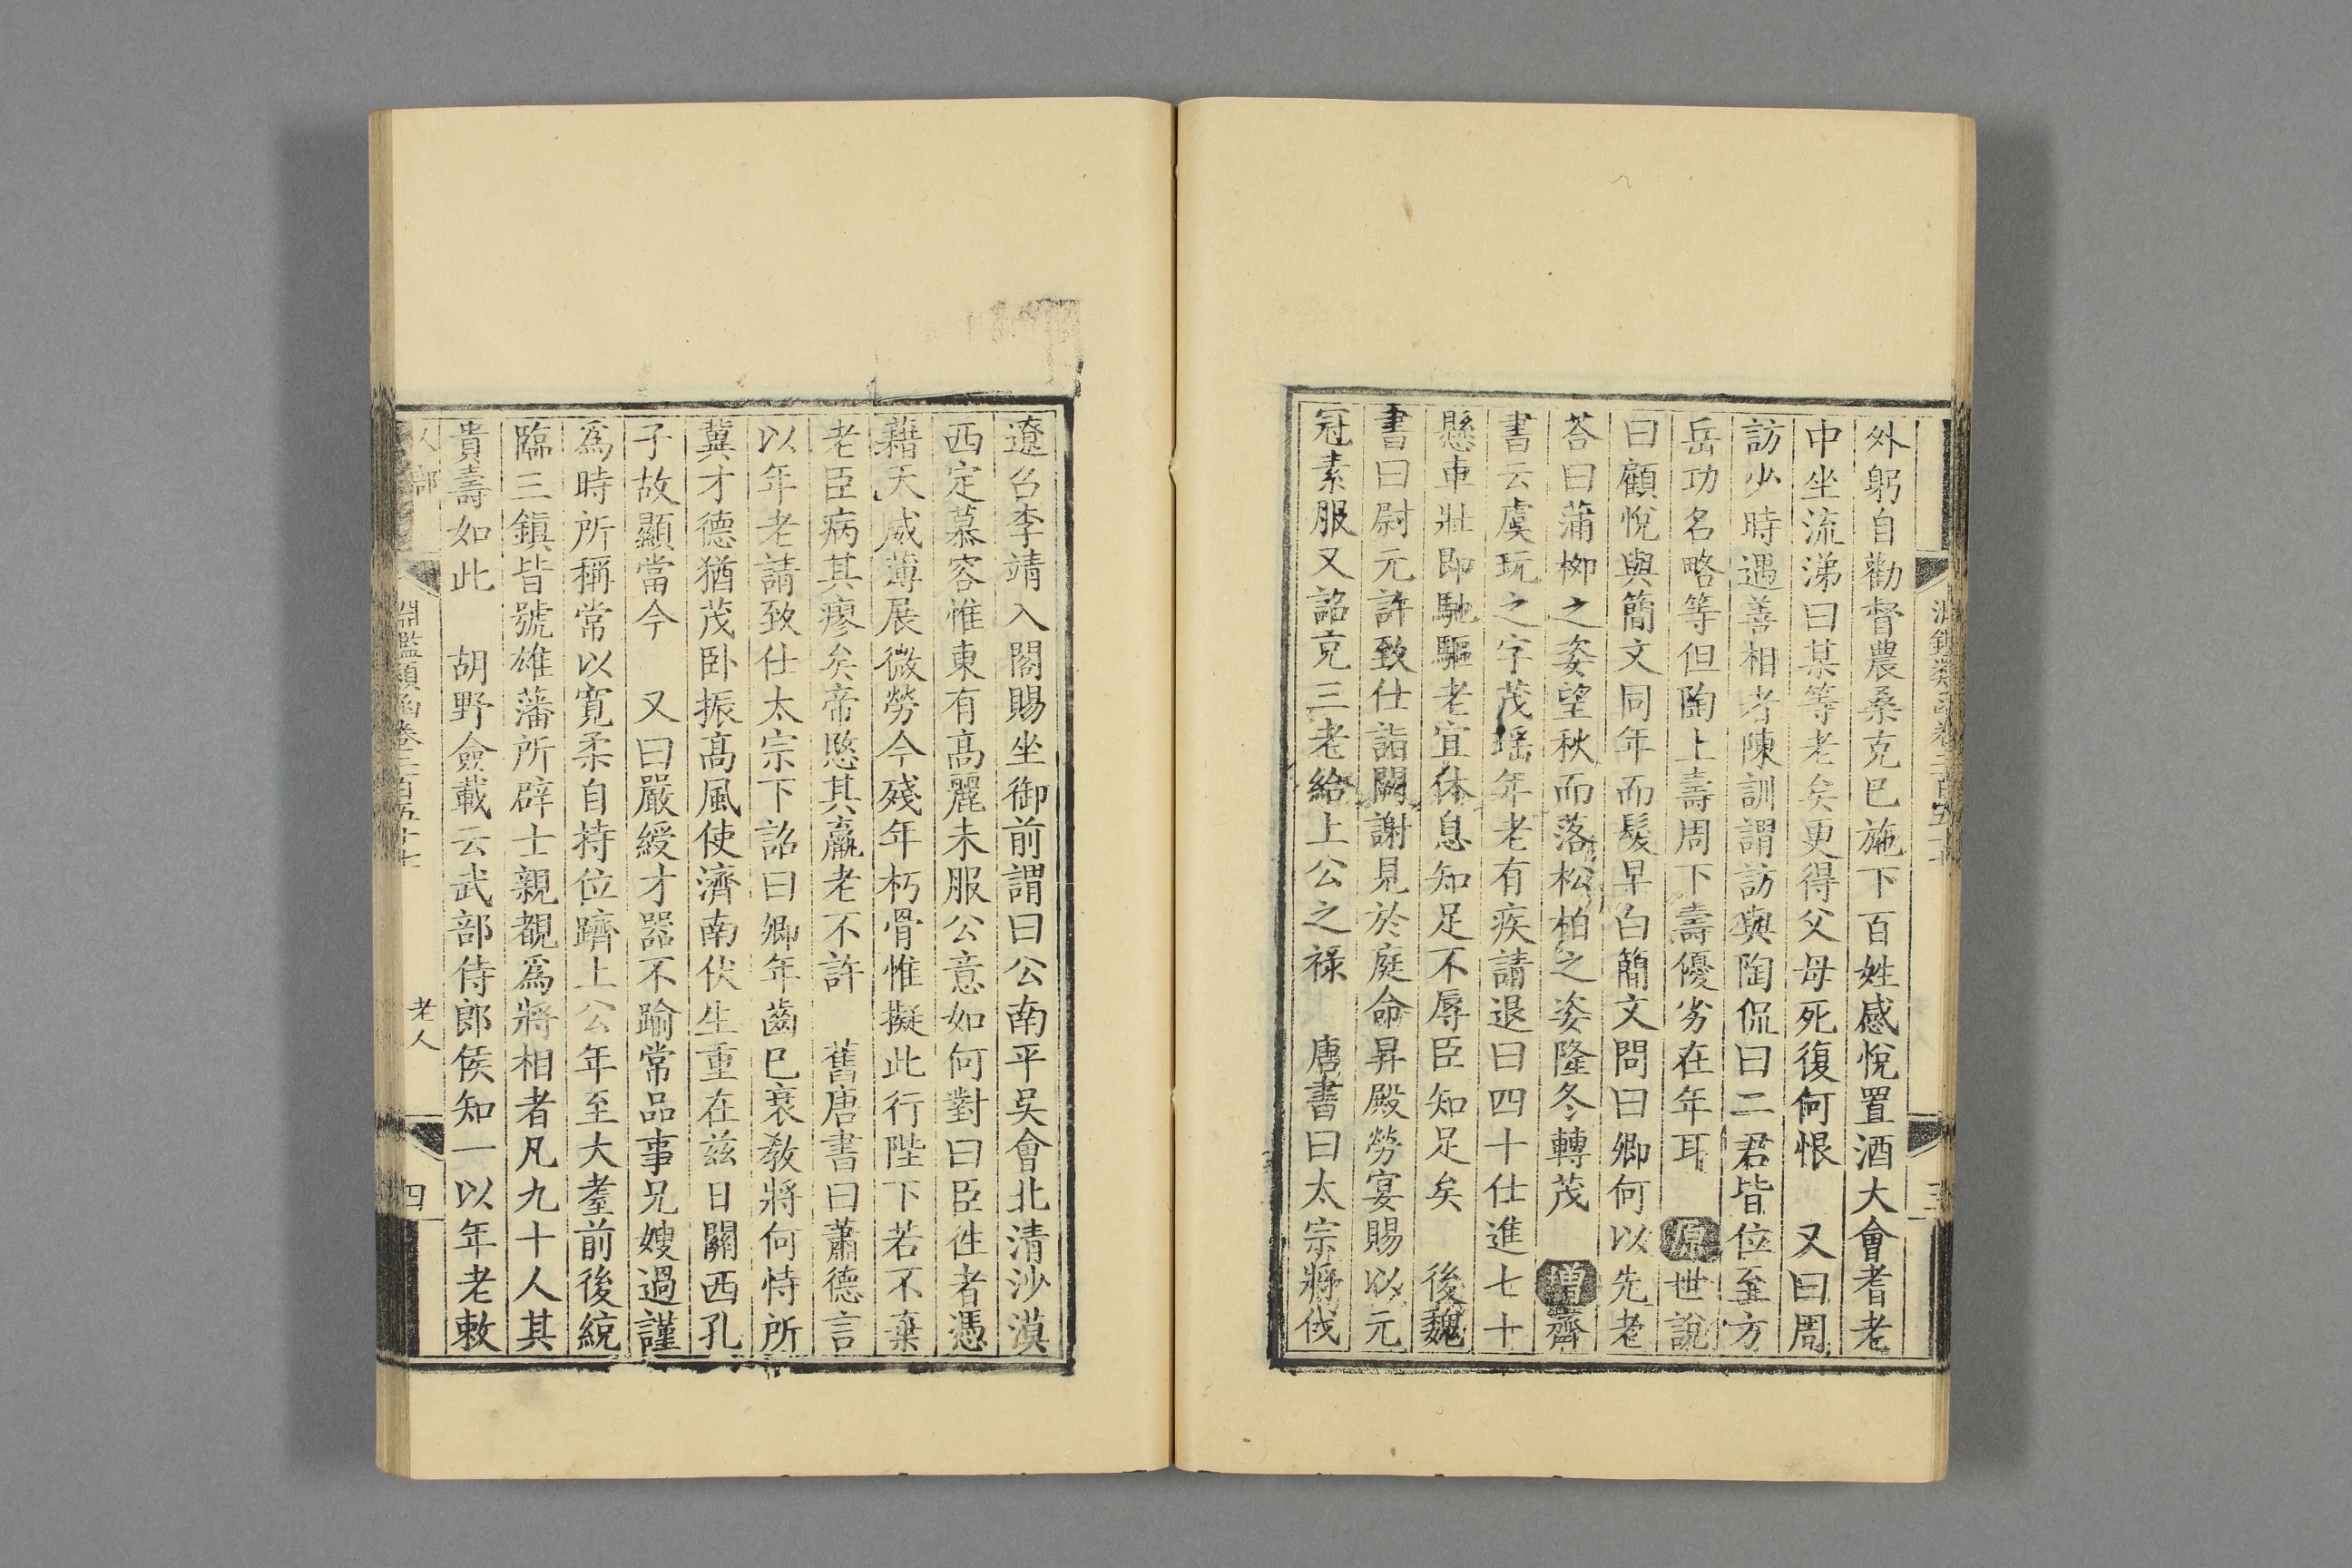 外躬自勸督農桑克巳施下百姓感悅置酒大會耆老
中坐流涕曰某等老矣更得父母死復何恨　又曰周
訪少時遇善相者陳訓謂訪與陶侃曰二君皆位至方
岳功名略等但陶上壽周下壽優劣在年耳　原世說
曰顧悅與簡文同年而髮早白簡文問曰卿何以先老
荅曰蒲柳之姿望秋而落松柏之姿隆冬轉茂　增齊
書云虞玩之字茂瑤年老有疾請退曰四十仕進七十
懸車壯即馳驅老宜休息知足不辱臣知足矣　後魏
書曰尉元許致仕詣闕謝見於庭命昇殿勞宴賜以元
冠素服又詔克三老給上公之祿　唐書曰太宗將伐
遼召李靖入閣賜坐御前謂曰公南平吳會北清沙漠
西定慕容惟東有高麗未服公意如何對曰臣徃者憑
藉天威薄展微勞今殘年朽骨惟擬此行陛下若不棄
老臣病其瘳矣帝愍其羸老不許　舊唐書曰蕭德言
以年老請致仕太宗下詔曰卿年齒巳衰敎將何恃所
冀才德猶茂臥振高風使濟南伏生重在茲日關西孔
子故顯當今　又曰嚴綬才器不踰常品事兄嫂過謹
爲時所稱常以寬柔自持位躋上公年至大耋前後統
臨三鎮皆號雄藩所辟士親覩爲將相者凡九十人其
貴壽如此　胡野僉載云武部侍郎侯知一以年老敕
人部　淵鑑類函卷二百五十七　老人　四